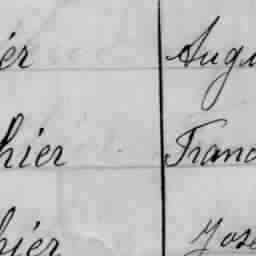 ér Augu
hier Franc
hier Jose